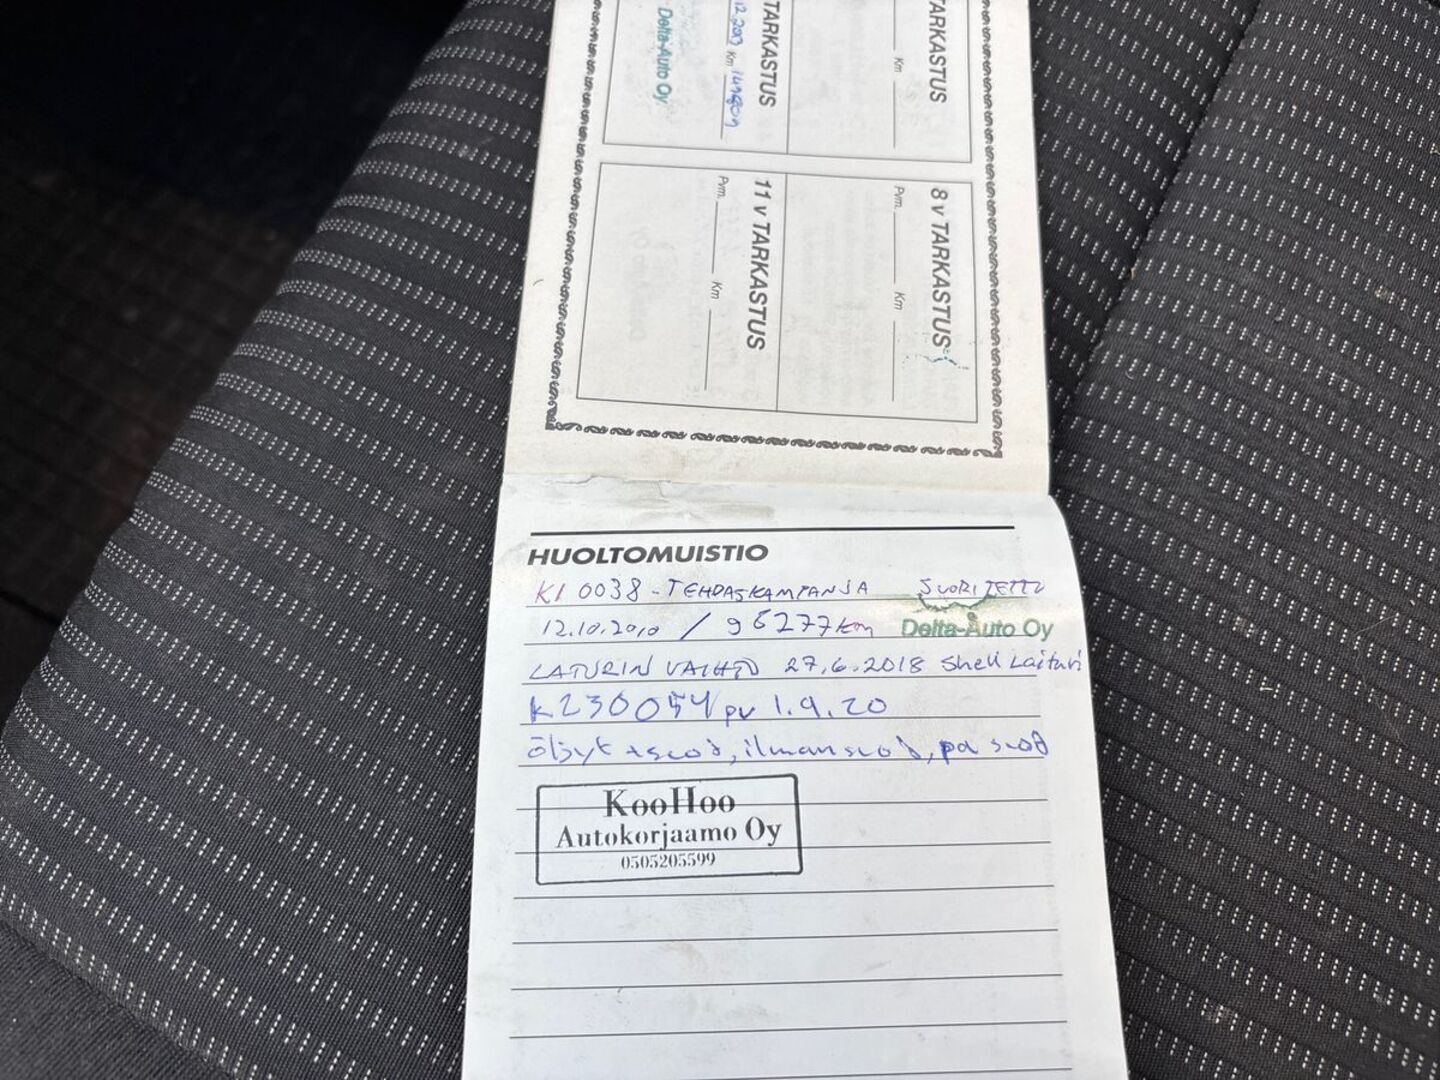 TARKASTUS
Km
TARKASTUS
Km
Delta-Auto Oy
8 v TARKASTUS
Pvm. Km
11 v TARKASTUS
Pvm. Km
HUOLTOMUISTIO
KI 0038 - TEHDASKAMPANJA SUORITETTU
12.10.2010 / 96277 km Delta-Auto Oy
LATURIN VAIHTO 27.6.2018 Shell Laituri
k230054/pv 1.9.20
öljyt + suod, ilmansuod, pa suod
KooHoo
Autokorjaamo Oy
0505205599